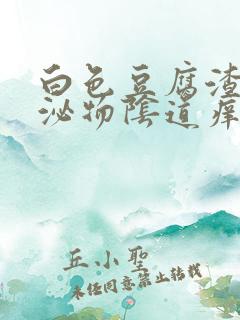 白色豆腐渣
泌物陰道痒
丘小聖
未经同意禁止转载